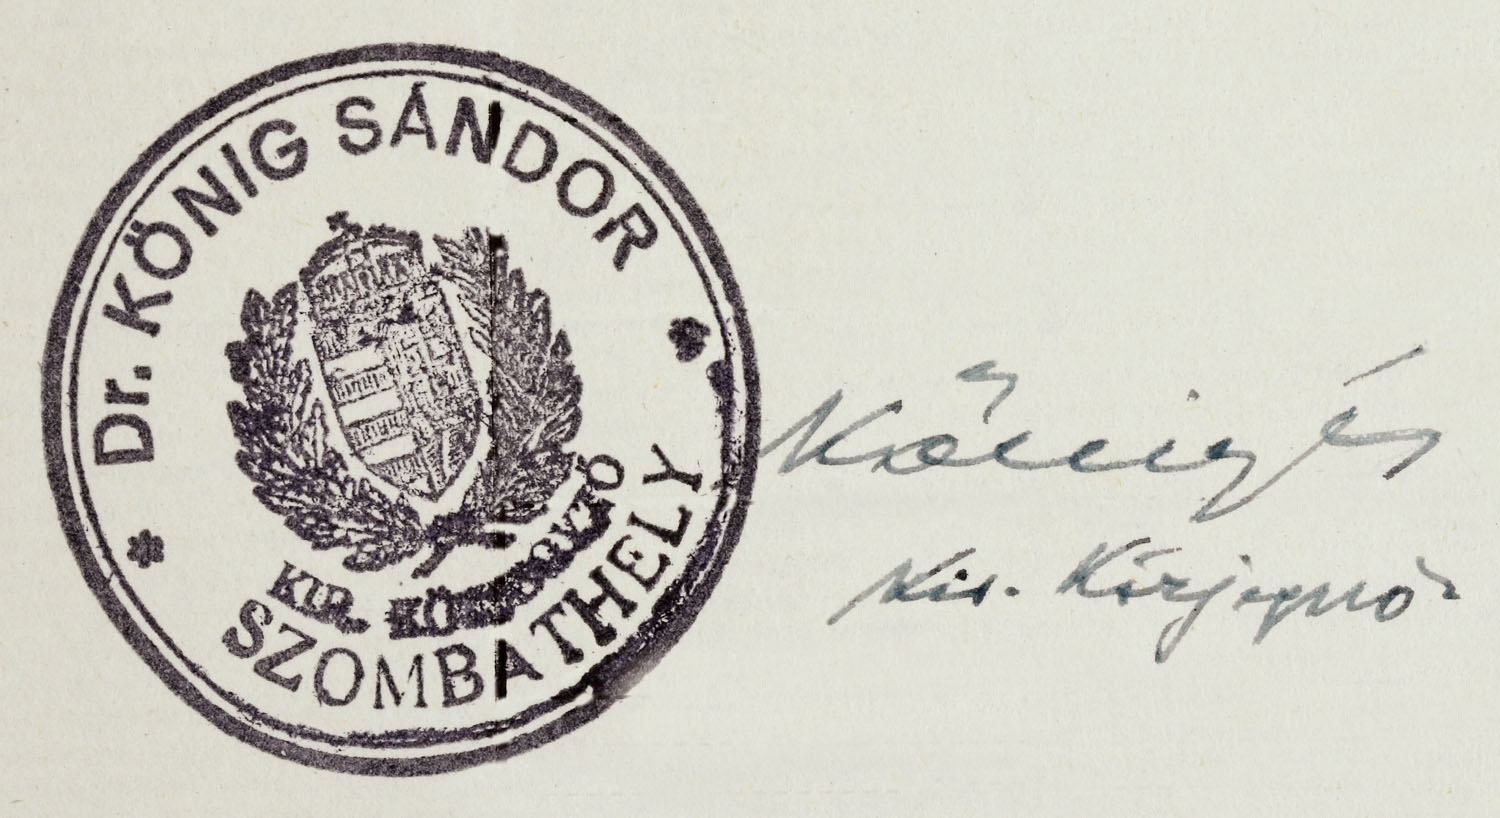 Dr. KÖNIG SÁNDOR
KIR. KÖZJEGYZŐ
SZOMBATHELY
König S
kir. Közjegyző